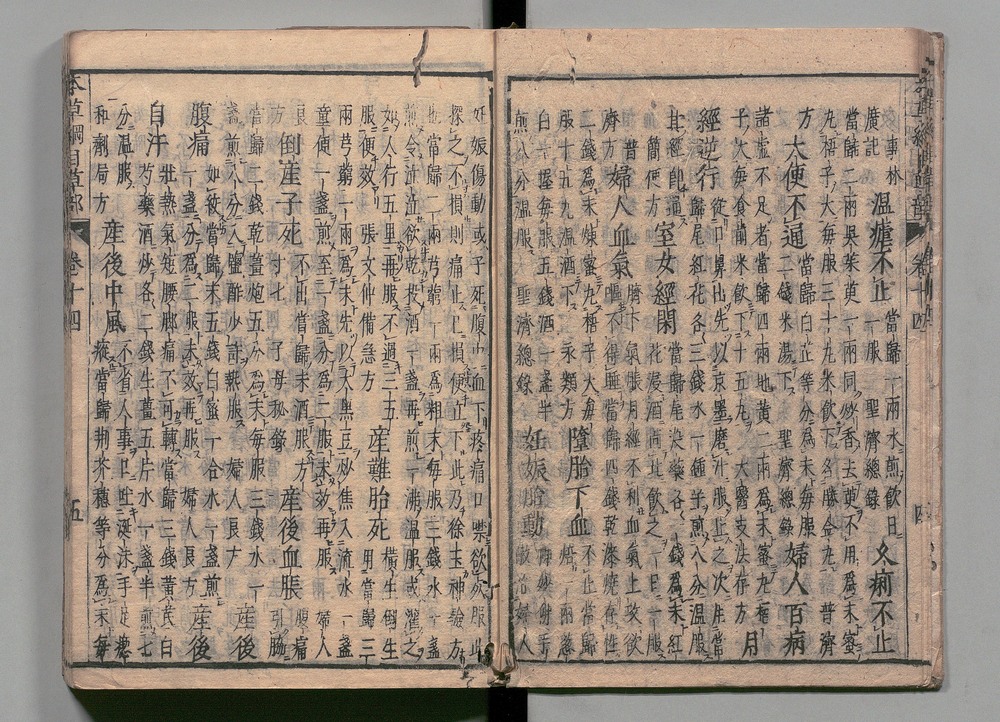 事林
廣記 温瘧不止 當歸一兩水煎飲日一服 聖濟總錄 久痢不止
當歸二兩吳茱萸一兩同炒香去萸不用爲末蜜
丸梧子大每服三十丸米飲下名勝金丸 普濟
方 大便不通 當歸白芷等分爲末每服二錢米湯下 聖濟總錄 婦人百病
諸虛不足者當歸四兩地黄二兩爲末蜜丸梧
子大每食前米飲下十五丸 大醫支法存方 月
經逆行 從口鼻出先以京墨磨汁服止之次用當歸尾紅花各三錢水一鍾半煎八分温服
其經即通 簡便方 室女經閉 當歸尾没藥各一錢爲末紅花浸酒面北飲之一日一服 普濟方
婦人血氣 臍下氣脹月經不利血氣上攻欲嘔不得睡當歸四錢乾漆燒存性
二錢爲末煉蜜丸梧子大每服十五丸温酒下 永類方 墮胎下血 不止當歸焙一兩葱
白一握每服五錢酒一盞半煎八分温服 聖濟總錄 妊娠胎動 婦人
妊娠傷動或子死腹中血下疼痛口噤欲死服此
探之不損則痛止已損便立下此乃徐王神驗方
也當歸二兩芎藭一兩爲粗末每服三錢水一盞
煎令汁泣欲乾投酒一盞再煎一沸温服或灌之
如人行五里再服不過三五服便效 張文仲備急方 産難胎死 横生倒生
當歸三兩芎藭一兩爲末先以大黑豆炒焦入流水一盞
童便一盞煎至一盞分爲二服未效再服 婦人良方
倒産子死 不出當歸末酒服方寸匕 子母秘錄 産後血脹 腹痛引脇
當歸二錢乾薑炮五分爲末每服三錢水一
盞煎八分入鹽酢少許熱服 婦人良方 産後
腹痛 如絞當歸末五錢白蜜一合水一盞煎一盞分爲二服未效再服 婦人良方 産後
自汗 壯熱氣短腰脚痛不可轉當歸三錢黄芪白芍藥酒炒各二錢生薑五片水一盞半煎七
分温服 和劑局方 産後中風 不省人事口吐涎沫手足瘛瘲當歸荆芥穗等分爲末每
本草綱目草部 卷十四 五